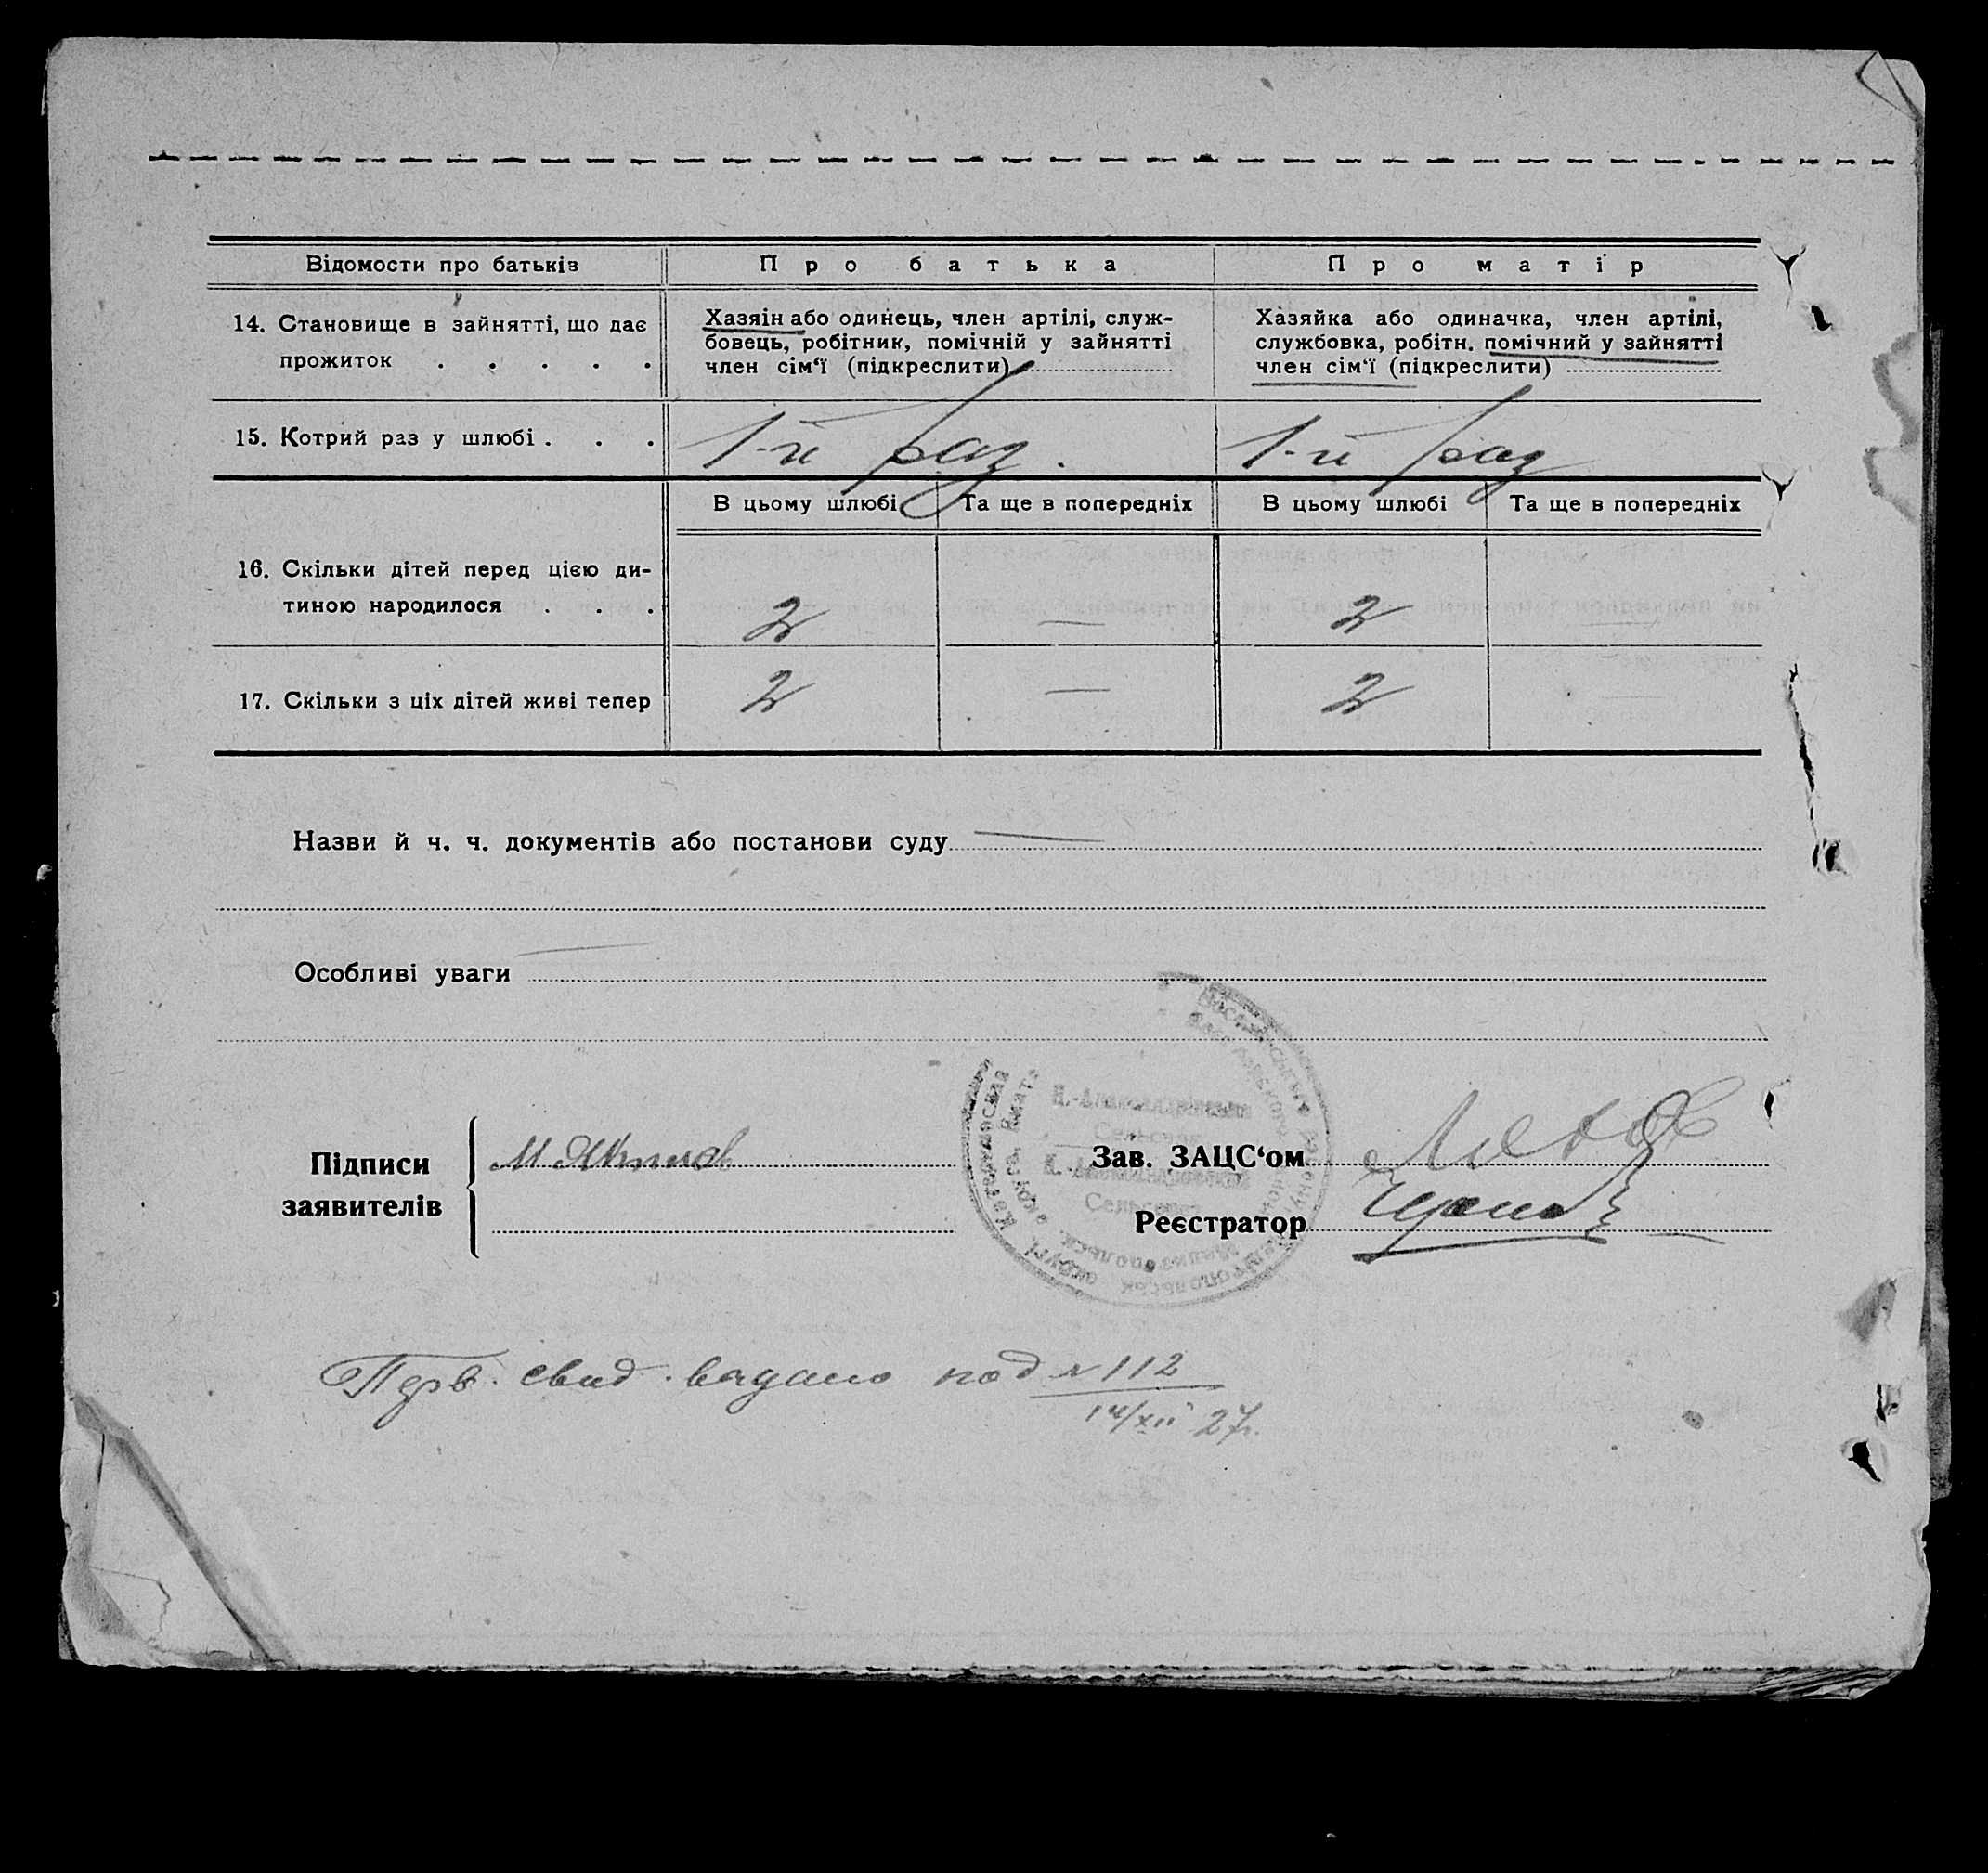 Відомости про батьків
Про батька
Про матір
14. Становище в зайнятті, що дає
прожиток . . . . .
Хазяін або одинець, член артілі, служ-
бовець, робітник, помічній у зайнятті
член сім‘ї (підкреслити)
Хазяйка або одиначка, член артілі,
службовка, робітн. помічний у зайнятті
член сім‘ї (підкреслити)
15. Котрий раз у шлюбі . . .
1-й раз.
1-й раз
В цьому шлюбі
Та ще в попередніх
В цьому шлюбі
Та ще в попередніх
16. Скільки дітей перед цією ди-
тиною народилося . . .
2 — 2 —
17. Скільки з ціх дітей живі тепер
2 — 2 —
Назви й ч. ч. документів або постанови суду —
Особливі уваги —
Підписи
заявителів
М
Зав. ЗАЦС‘ом
Реєстратор
Сельсовет
Мелитопольск.
округі
Перв. свид. видано под № 112
14/XII 27г.